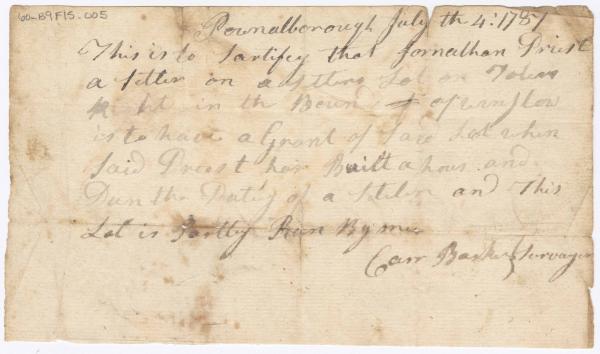 60-B9F15.005
Pownalborough July th 4: 1787
This is to Sartifey that Jornathan Priest
a Setler on a Setling Lot on
Right in the Bounds of Winslow
is to have a Grant of Said Lot when
Said Preest has Built a hous and
Dun the Dutey of a Setler and This
Lot is Partly Run By me
Carr Barker Survayer